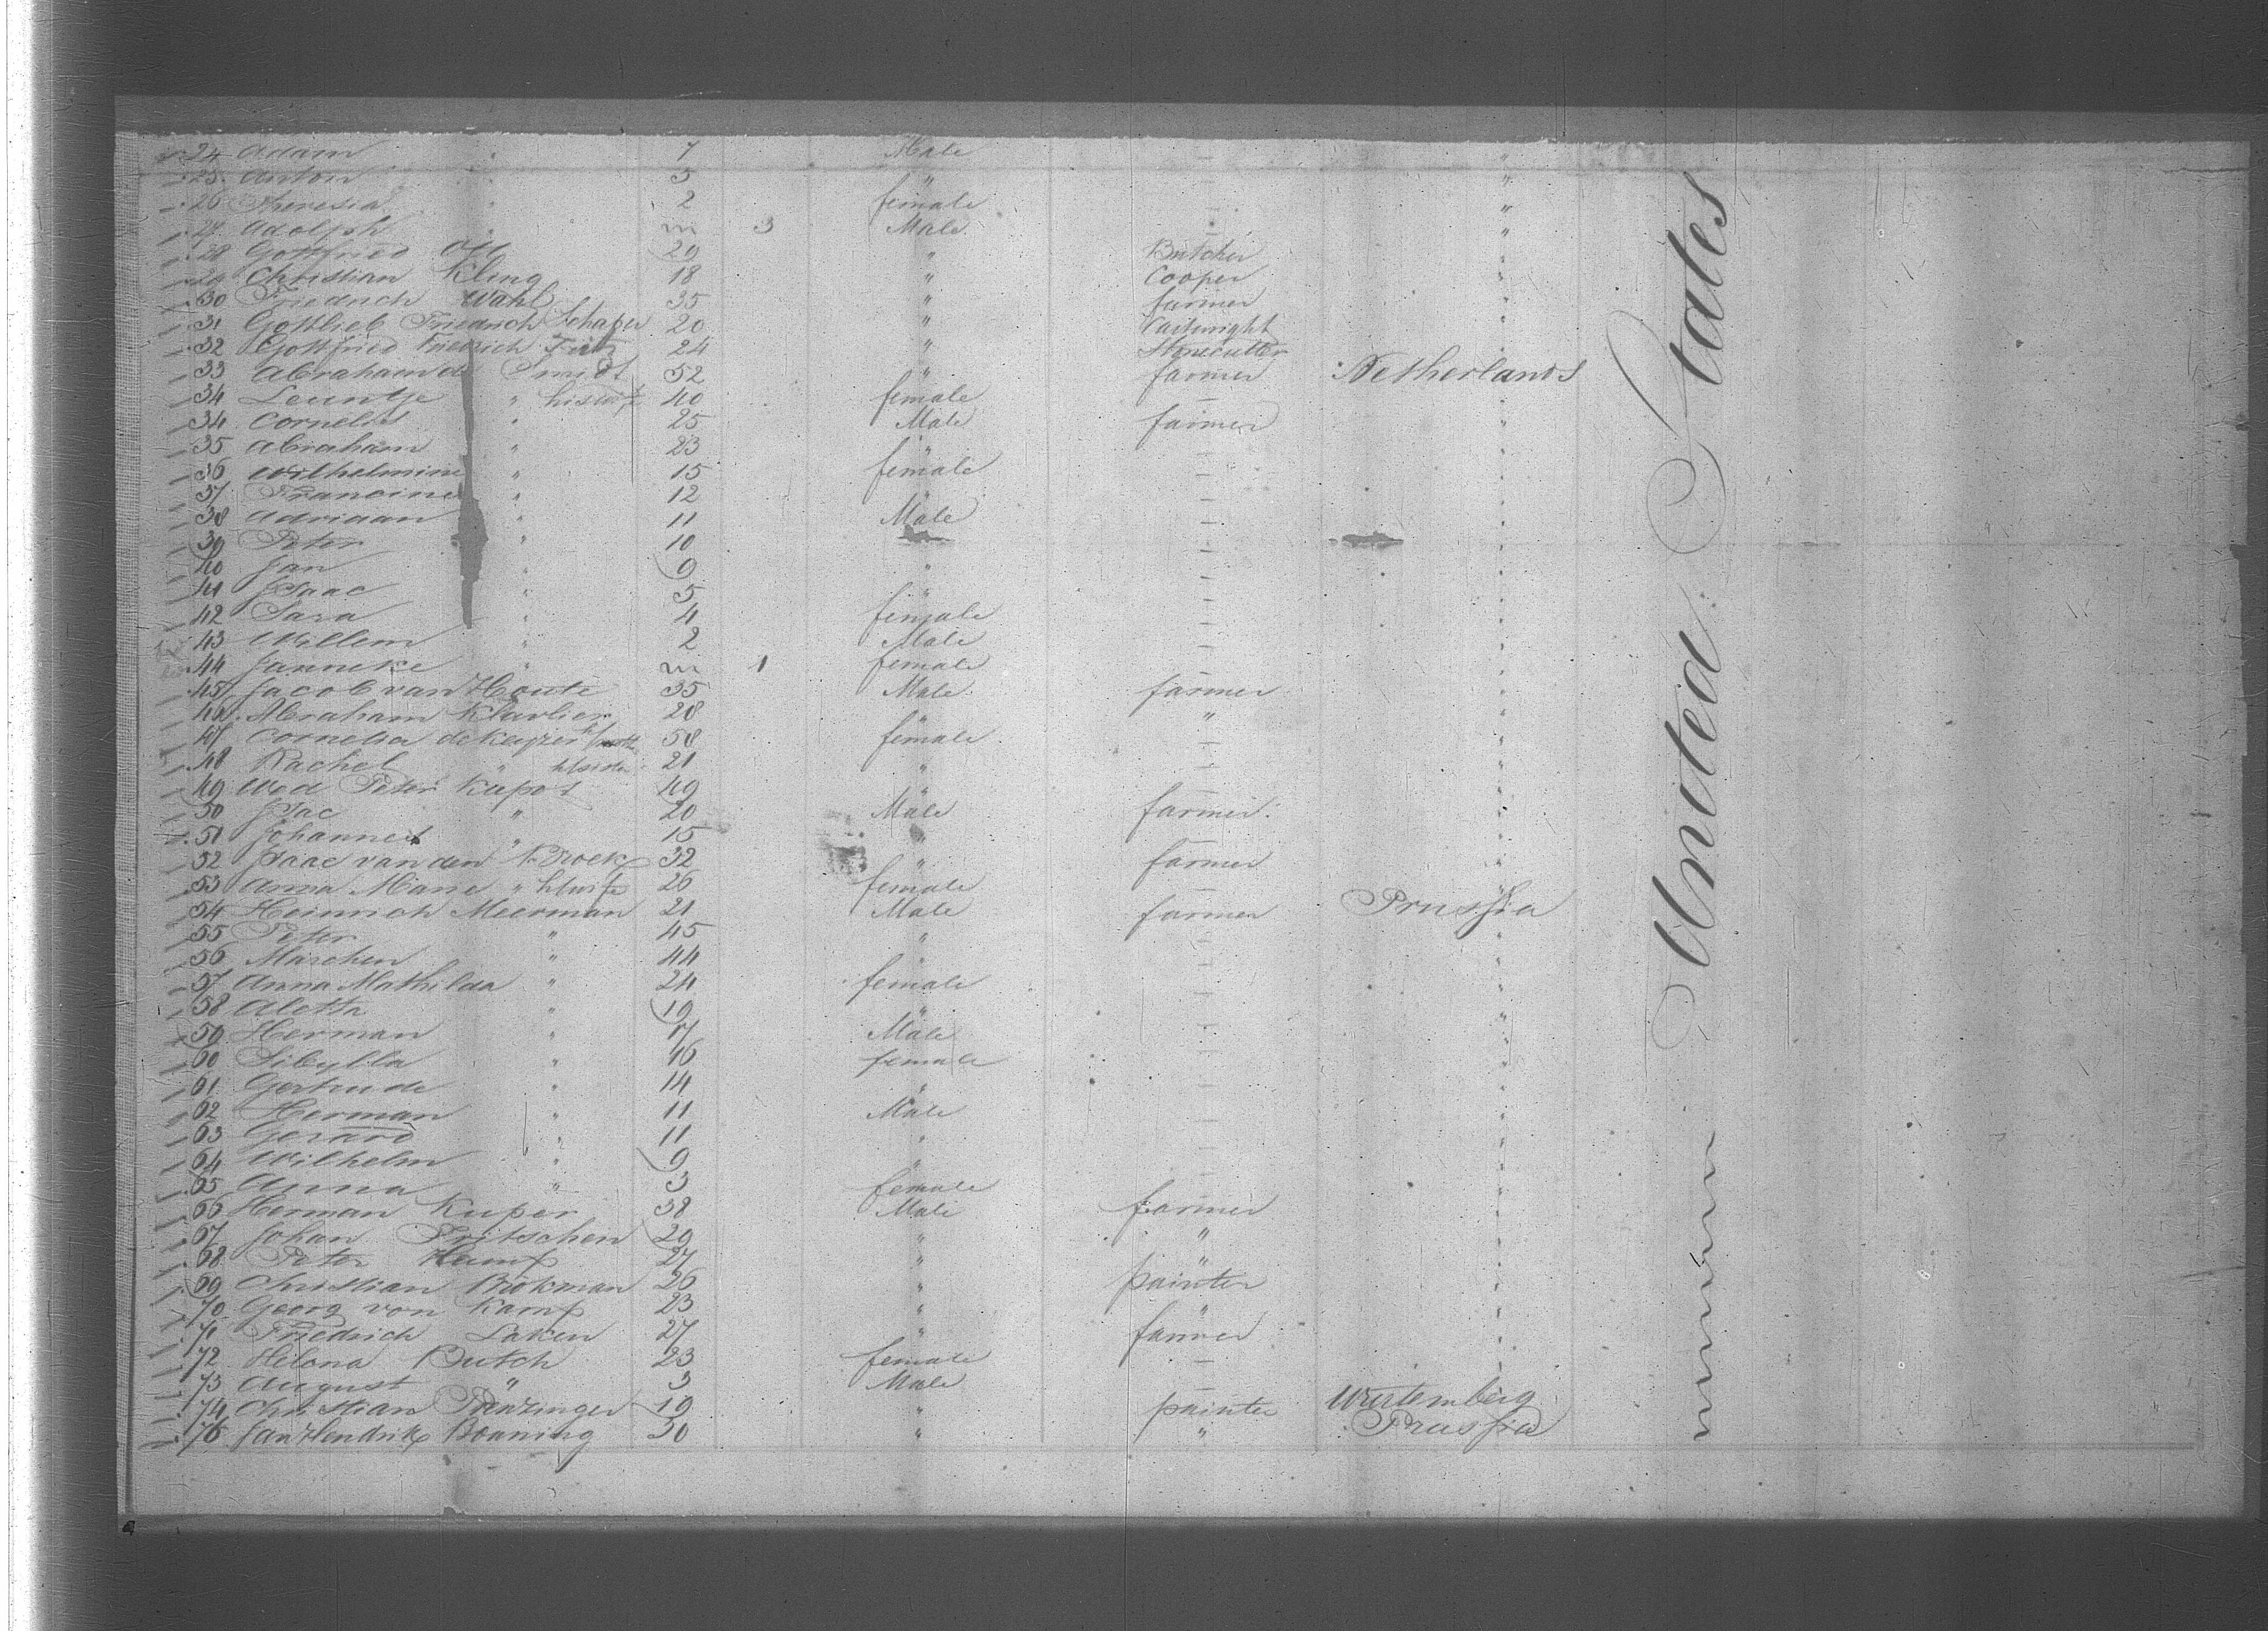 24 Adam " 7 Male — "
25 Anton " 5 " — "
26 Theresia " 2 female — "
27 Adolph " m 3 Male — "
28 Gottfried Ott 29 " Butcher "
29 Christian Kling 18 " Cooper "
30 Friedrich Wahl 35 " farmer "
31 Gottlieb Friedrich Schafer 20 " Cartwright "
32 Gottfried Friedrich 24 " Stonecutter
33 Abraham de Smidt 52 " farmer Netherlands
34 Leuntje " his wife 40 female — "
34 Cornelis " 25 Male farmer "
35 Abraham " 23 " — "
36 Wilhelmine " 15 female — "
37 Francine " 12 " — "
38 Adriaan " 11 Male — "
39 Peter " 10 " — "
40 Jan " 9 " — "
41 Isaac " 5 " — "
42 Sara " 4 female — "
43 Willem " 2 Male — "
44 Janneke " m 1 female — "
45 Jacob van Houte 35 Male farmer "
46 Abraham Klavlier 28 " " "
47 Cornelia de Keyzer 58 female — "
48 Rachel " 21 " — "
49 Wed Peter Kapot 49 " — "
50 Isac " 20 Male farmer "
51 Johannes " 15 " — "
52 Isaac van den Broek 32 " farmer "
53 Anna Marie " h wife 26 female — "
54 Heinrich Meerman 21 Male farmer Prussia
55 Peter " 45 " — "
56 Marchen " 44 " — "
57 Anna Mathilda " 24 female — "
58 Aletta " 19 " — "
59 Herman " 17 Male — "
60 Sibylla " 16 female — "
61 Gertrude " 14 " — "
62 Herman " 11 Male — "
63 Gerard " 11 " — "
64 Wilhelm " 9 " — "
65 Anna " 3 female — "
66 Herman Kuper 38 Male farmer "
67 Johan Fritschen 29 " " "
68 Peter Heunf 27 " " "
69 Christian Brokman 26 " painter "
70 Georg von Kamp 23 " " "
71 Friedrich Laken 27 " farmer "
72 Helena Butch 23 female — "
73 August " 3 Male — "
74 Christian 19 " painter Wurtemberg
76 Jan Hendrik Bonning 30 " " Prussia
United States